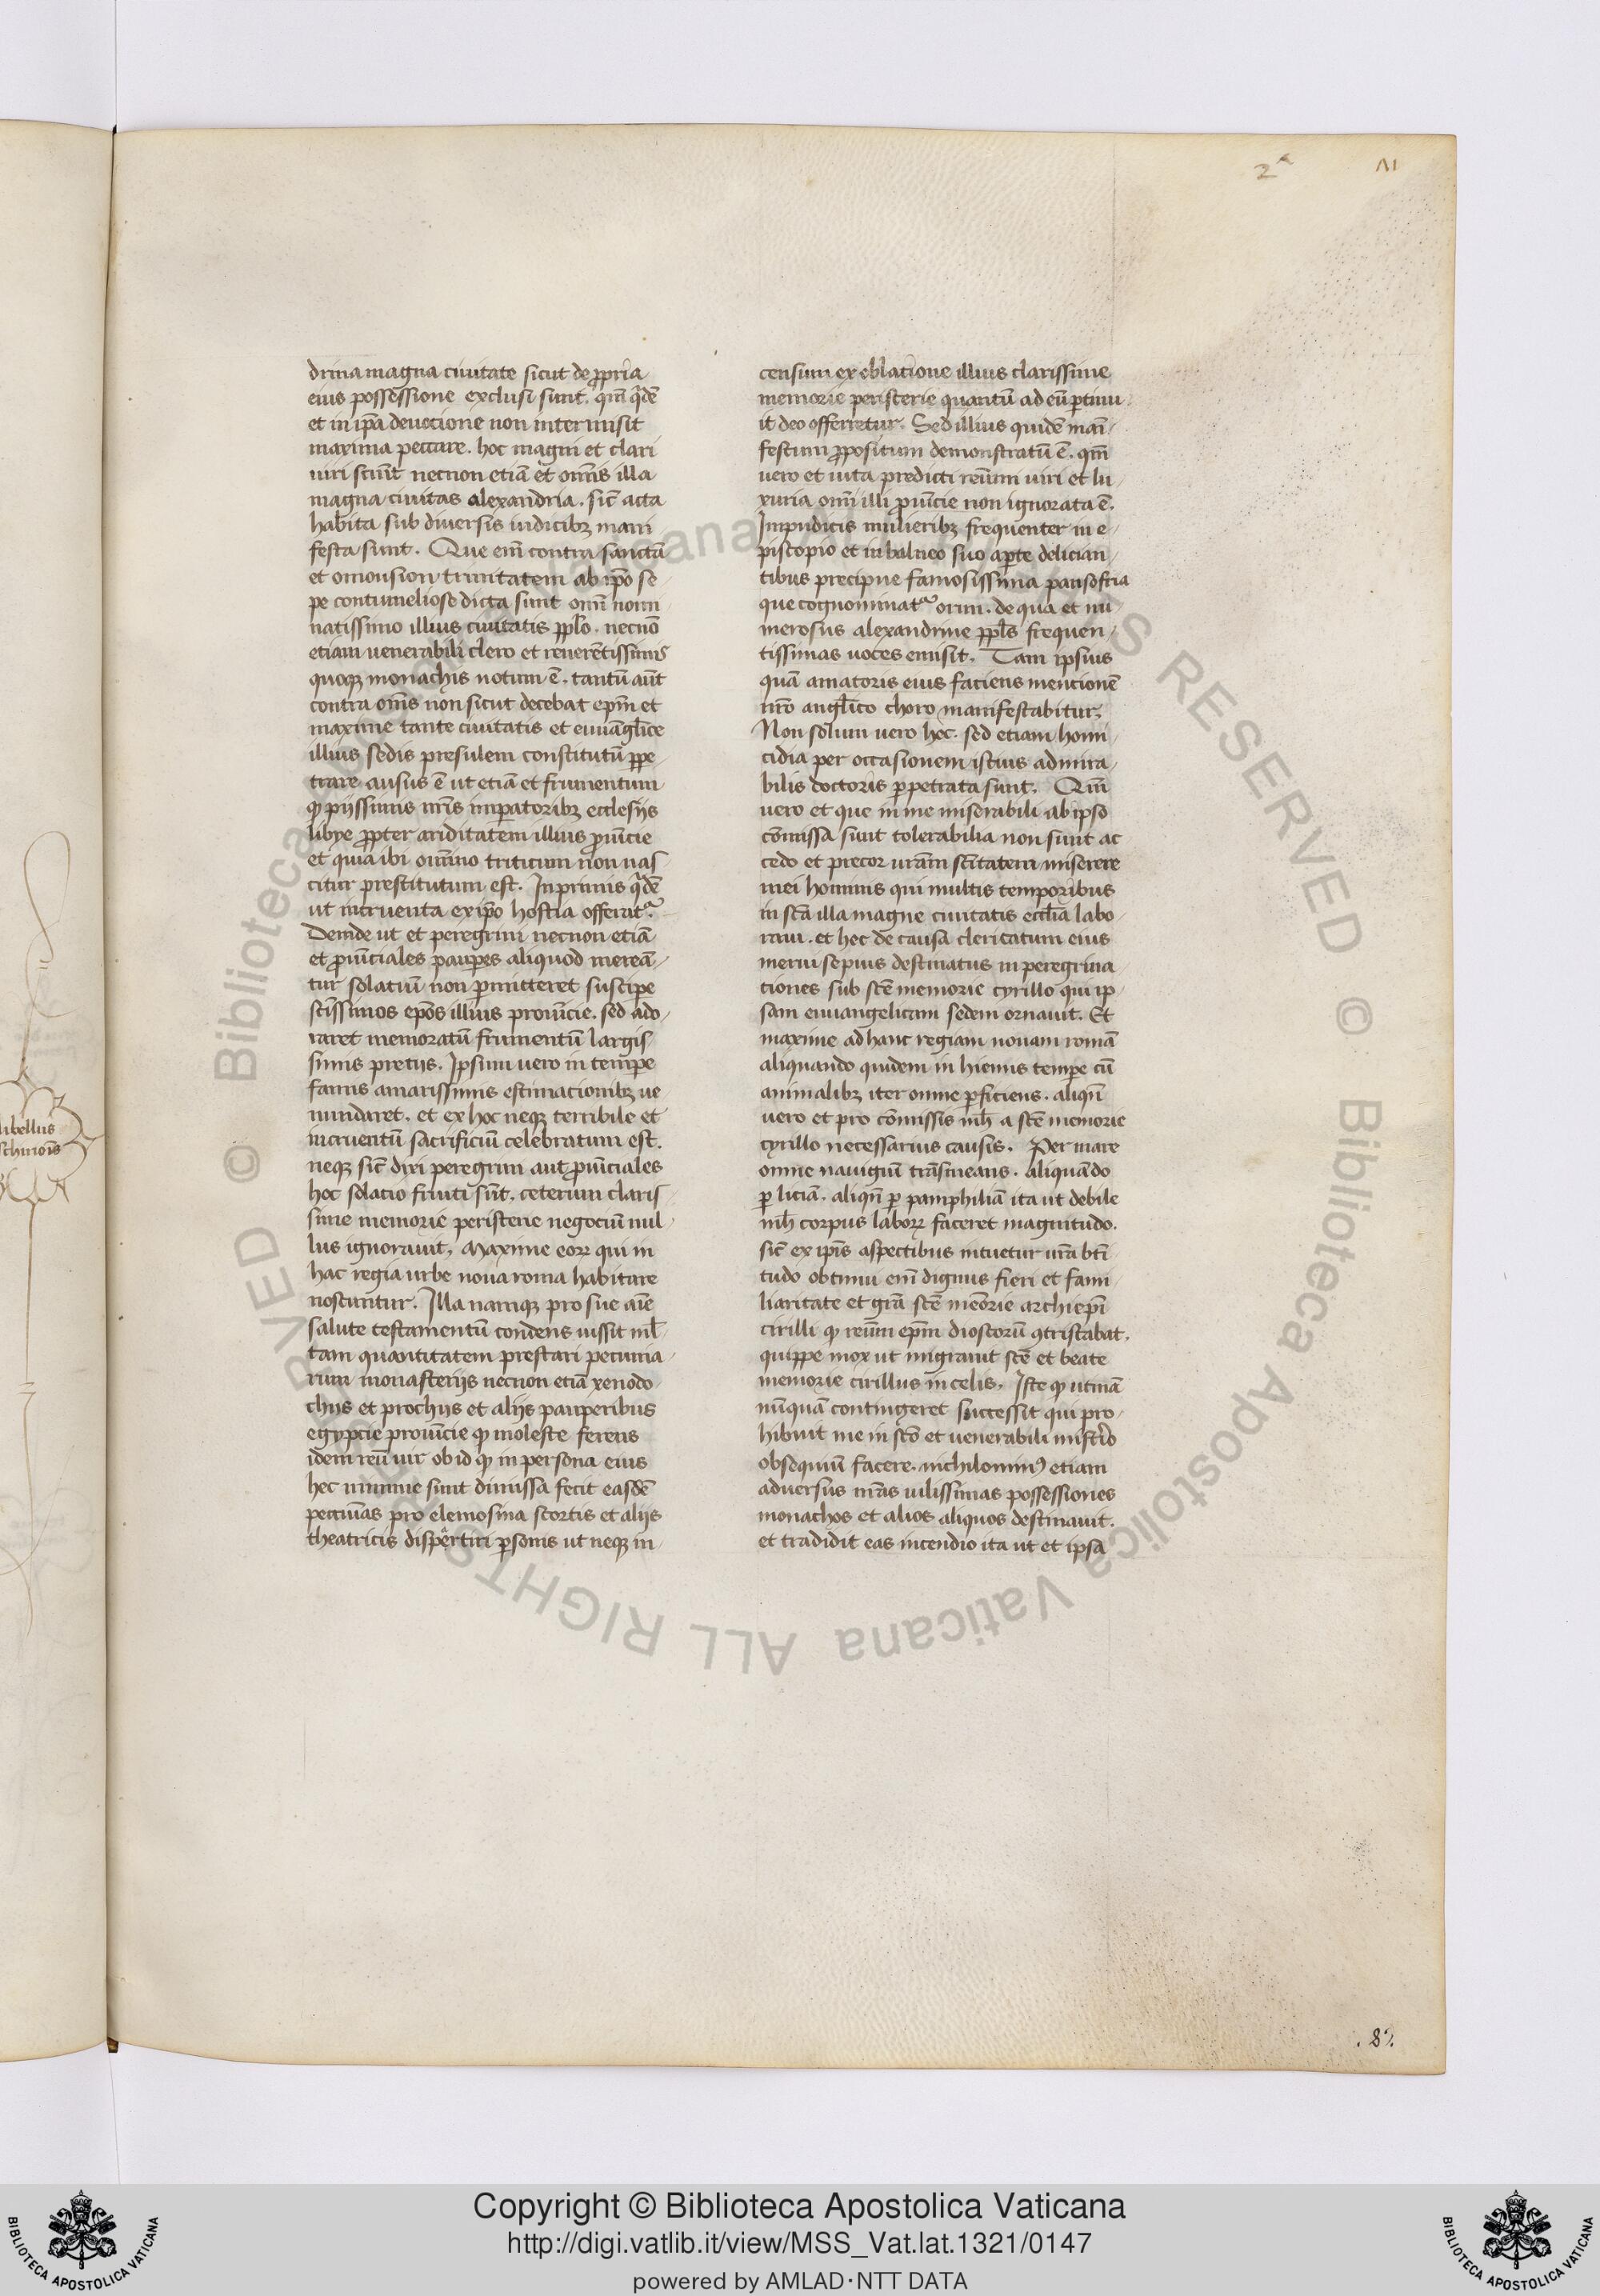 2ᵃ
drina magna ciuitate sicut de ꝓpria
eius possessione exclusi sunt. qm̄ qͥdē
et in ip̄a deuocione non intermisit
maxima peccare. hoc magni et clari
uiri sciūt necnon etiā et om̄is illa
magna ciuitas alexandria. sic̄ acta
habita sub diuersis iudicibꝫ mani
festa sunt. Que em̄ contra sanctā
et omousion trinitatem ab ip̄o se
pe contumeliose dicta sunt om̄i nomi
natissimo illius ciuitatis ppl̄o. necnō
etiam uenerabili clero et reuerētissimis
quoqꝫ monachis notum ē. tantū aūt
contra om̄s non sicut decebat ep̄m et
maxime tante ciuitatis et euuāgl̄ice
illius sedis presulem constitutū ꝑpe
trare ausus ē ut etiā et frumentum
qͦ pijssimis nr̄is imꝑatoribꝫ ecclesijs
libye ꝓpter ariditatem illius ꝓuīcie
et quia ibi omīno triticum non nas
citur prestitutum est. Inprimis qͥdē
ut incruenta ex ip̄o hostia offeratᷣ.
Deinde ut et peregrini necnon etiā
et ꝓuīciales pauꝑes aliquod mereā
tur solatiū non ꝑmitteret susciꝑe
sc̄issimos ep̄os illius prouīcie. sed ado
raret memoratū frumentū largis
simis pretijs. Ipsum uero in temꝑe
famis amarissimis estimacionibꝫ ue
nundaret. et ex hoc neqꝫ terribile et
incruentū sacrificiū celebratum est.
neqꝫ sic̄ dixi peregrini aut ꝓuīciales
hoc solacio fruiti sūt. ceterum claris
sime memorie peristerie negociū nul
lus ignorauit. Maxime eoꝝ qui in
hac regia urbe noua roma habitare
noscuntur. Illa namqꝫ pro sue aīe
salute testamentū condens iussit ml̄
tam quantitatem prestari pecunia
rum monasterijs necnon etiā xenodo
chijs et prochijs et alijs pauperibus
egypcie prouīcie qͦ moleste ferens
idem reū uir ob id qͦ in persona eius
hec minime sunt dimissa fecit easdē
peccuīas pro elemosina scortis et alijs
theatricis disꝑtiri ꝑsonis ut neqꝫ in
censum ex oblatione illius clarissime
memorie peristerie quantū ad eū ꝑtinu
it deo offerretur. Sed illius quidē mani
festum ꝓpositum demonstratū ē. qm̄
uero et uita predicti reūm uiri et lu
xuria om̄i illi ꝓuīcie non ignorata ē.
Impudicis mulieribꝫ frequenter in e
piscopio et in balneo suo aꝑte delician
tibus precipue famosissima pansofia
que cognominatᷣ orini. de qua et nu
merosus alexandrine ppl̄s frequen
tissimas uoces emisit. Tam ipsius
quā amatoris eius faciens mencionē
nr̄o angl̄ico choro manifestabitur.
Non solum uero hec. sed etiam homi
cidia per occasionem istius admira
bilis doctoris ꝑpetrata sunt. Qm̄
uero et que in me miserabili ab ipso
cōmissa sunt tolerabilia non sunt ac
cedo et precor uram̄ sc̄itatem miserere
mei hominis qui multis temporibus
in sc̄a illa magne ciuitatis eccl̄ia labo
raui. et hec de causa clericatum eius
merui sepius destinatus in peregrina
tiones sub sc̄e memorie cyrillo qui ip
sam euuangelicam sedem ornauit. Et
maxime ad hanc regiam nouam romā
aliquando quidem in hiemis temꝑe cū
animalibꝫ iter omne ꝑficiens. aliqn̄
uero et pro cōmissis mh̄ a sc̄e memorie
cyrillo necessarius causis. Per mare
omne nauigiū trāsmeans. aliquādo
ꝑ liciā. aliqn̄ ꝑ pamphiliā ita ut debile
mh̄ corpus laboꝝ faceret magnitudo.
sic̄ ex ip̄is aspectibus intuetur ur̄a bt̄i
tudo obtinui em̄ dignus fieri et fami
liaritate et gr̄a sc̄e memorie archiep̄i
cirilli qͦ reūm ep̄m dioscorū ꝯtristabat.
quippe mox ut migrauit sc̄e et beate
memorie cirillus in celis. Iste qͦ utinā
nūquā contingeret successit qui pro
hibuit me in sc̄o et uenerabili mist̄io
obsequiū facere. nichilominꝰ etiam
aduersus nr̄as uilissimas possessiones
monachos et alios aliquos destinauit.
et tradidit eas incendio ita ut et ipsa
libellus
schirois
.82.
Copyright © Biblioteca Apostolica Vaticana
http://digi.vatlib.it/view/MSS_Vat.lat.1321/0147
powered by AMLAD·NTT DATA
BIBLIOTECA APOSTOLICA VATICANA
BIBLIOTECA APOSTOLICA VATICANA